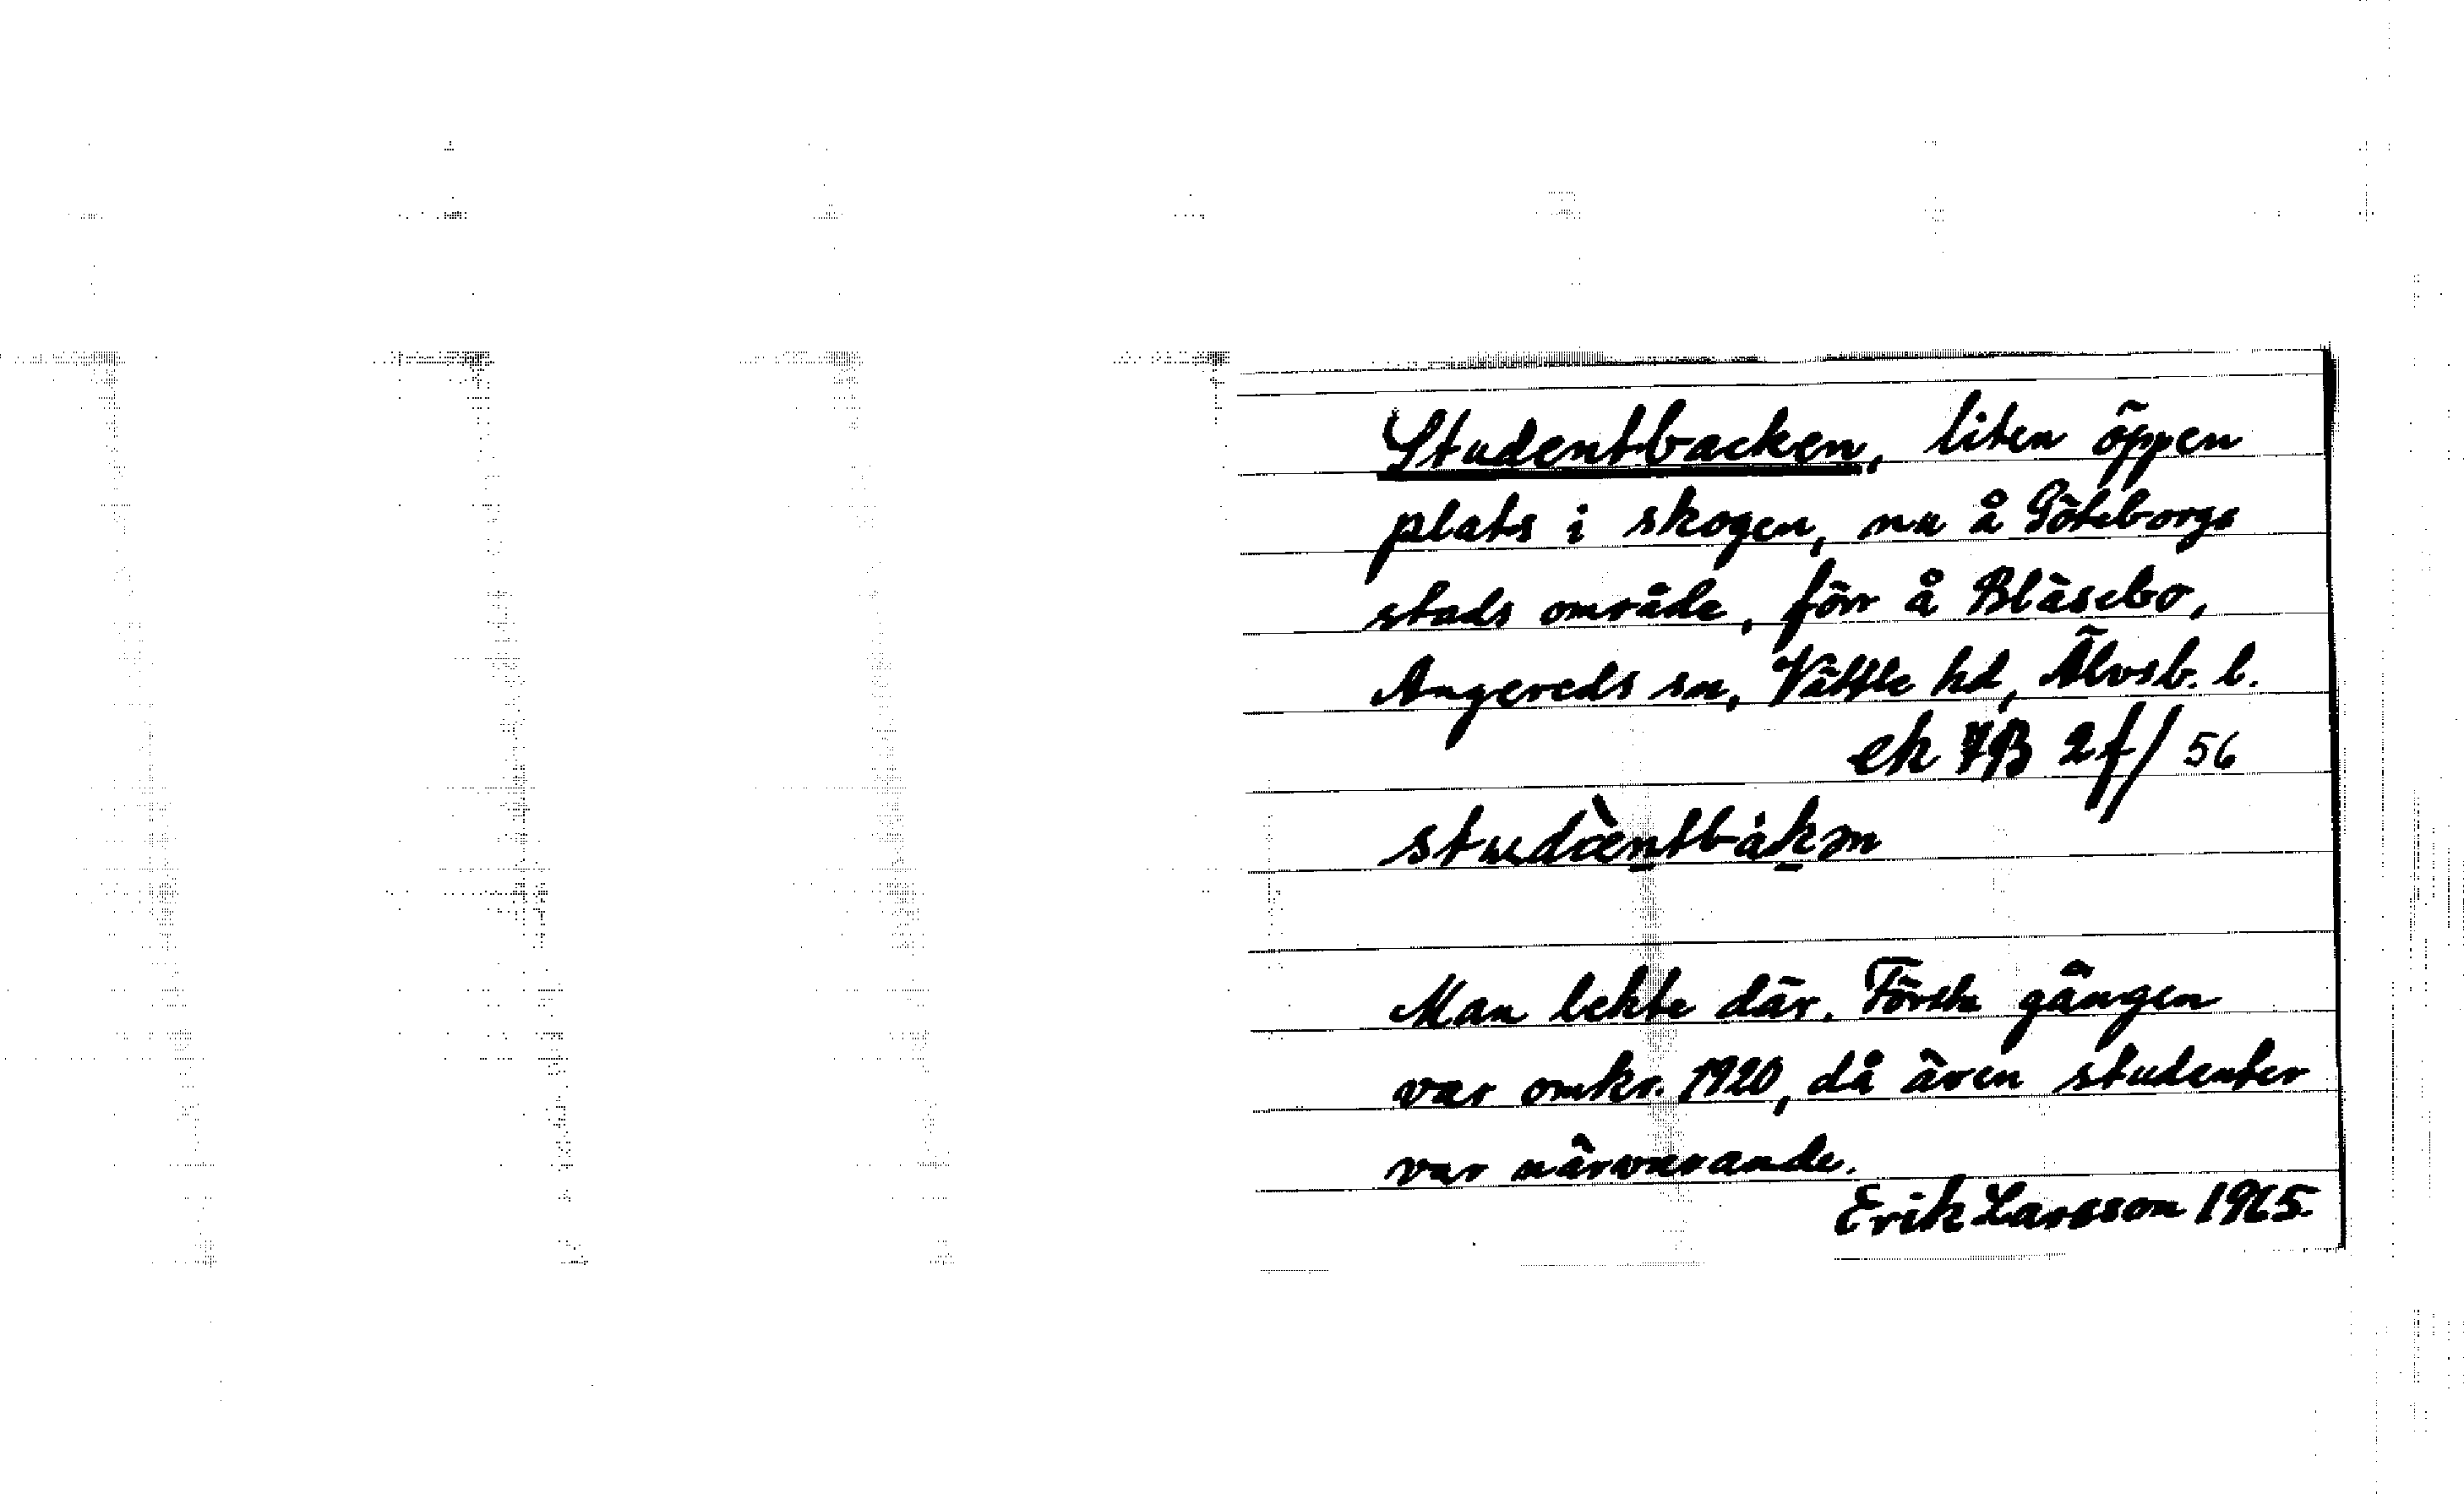 Studentbacken, liten öppen
plats i skogen, nu å Göteborgs
stads område, förr å Blåsebo,
Angereds sn, Vättle hd, Älvsb. l.
ek 7B 2f/56
studæ̀ntbàkən
Man lekte där. Första gången
var omkr. 1920, då även studenter
var närvarande.
Erik Larsson 1965.